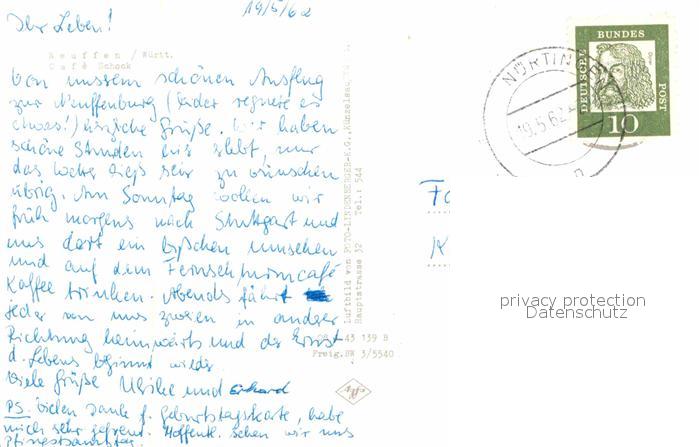 19/5/62
Ihr Lieben!
Neuffen / Württ.
Café Schock
Von unserem schönen Ausflug
zur Neuffenburg (leider regnete es
etwas!) herzliche Grüße. Wir haben
schöne Stunden hier erlebt, nur
das Wetter ließ sehr zu wünschen
übrig. Am Sonntag wollen wir
früh morgens nach Stuttgart und
uns dort ein bißchen umsehen
und auf dem Fernsehturmcafé
Kaffee trinken. Abends fährt
jeder von uns zweien in anderer
Richtung heimwärts und der Ernst
d. Lebens beginnt wieder.
Viele Grüße Ulrike und Erhard
PS. Vielen Dank f. Geburtstagskarte, habe
mich sehr gefreut. Hoffentl. sehen wir uns
Pfingstsamstag.
Luftbild von FOTO-LINDENBERGER-K.G., Künzelsau
Hauptstrasse 32 Tel.: 544
43 139 B
Freig. BW 3/5540
Agfa
NÜRTINGEN
19.5.62
DEUTSCHE
BUNDES
POST
Dürer
10
privacy protection
Datenschutz